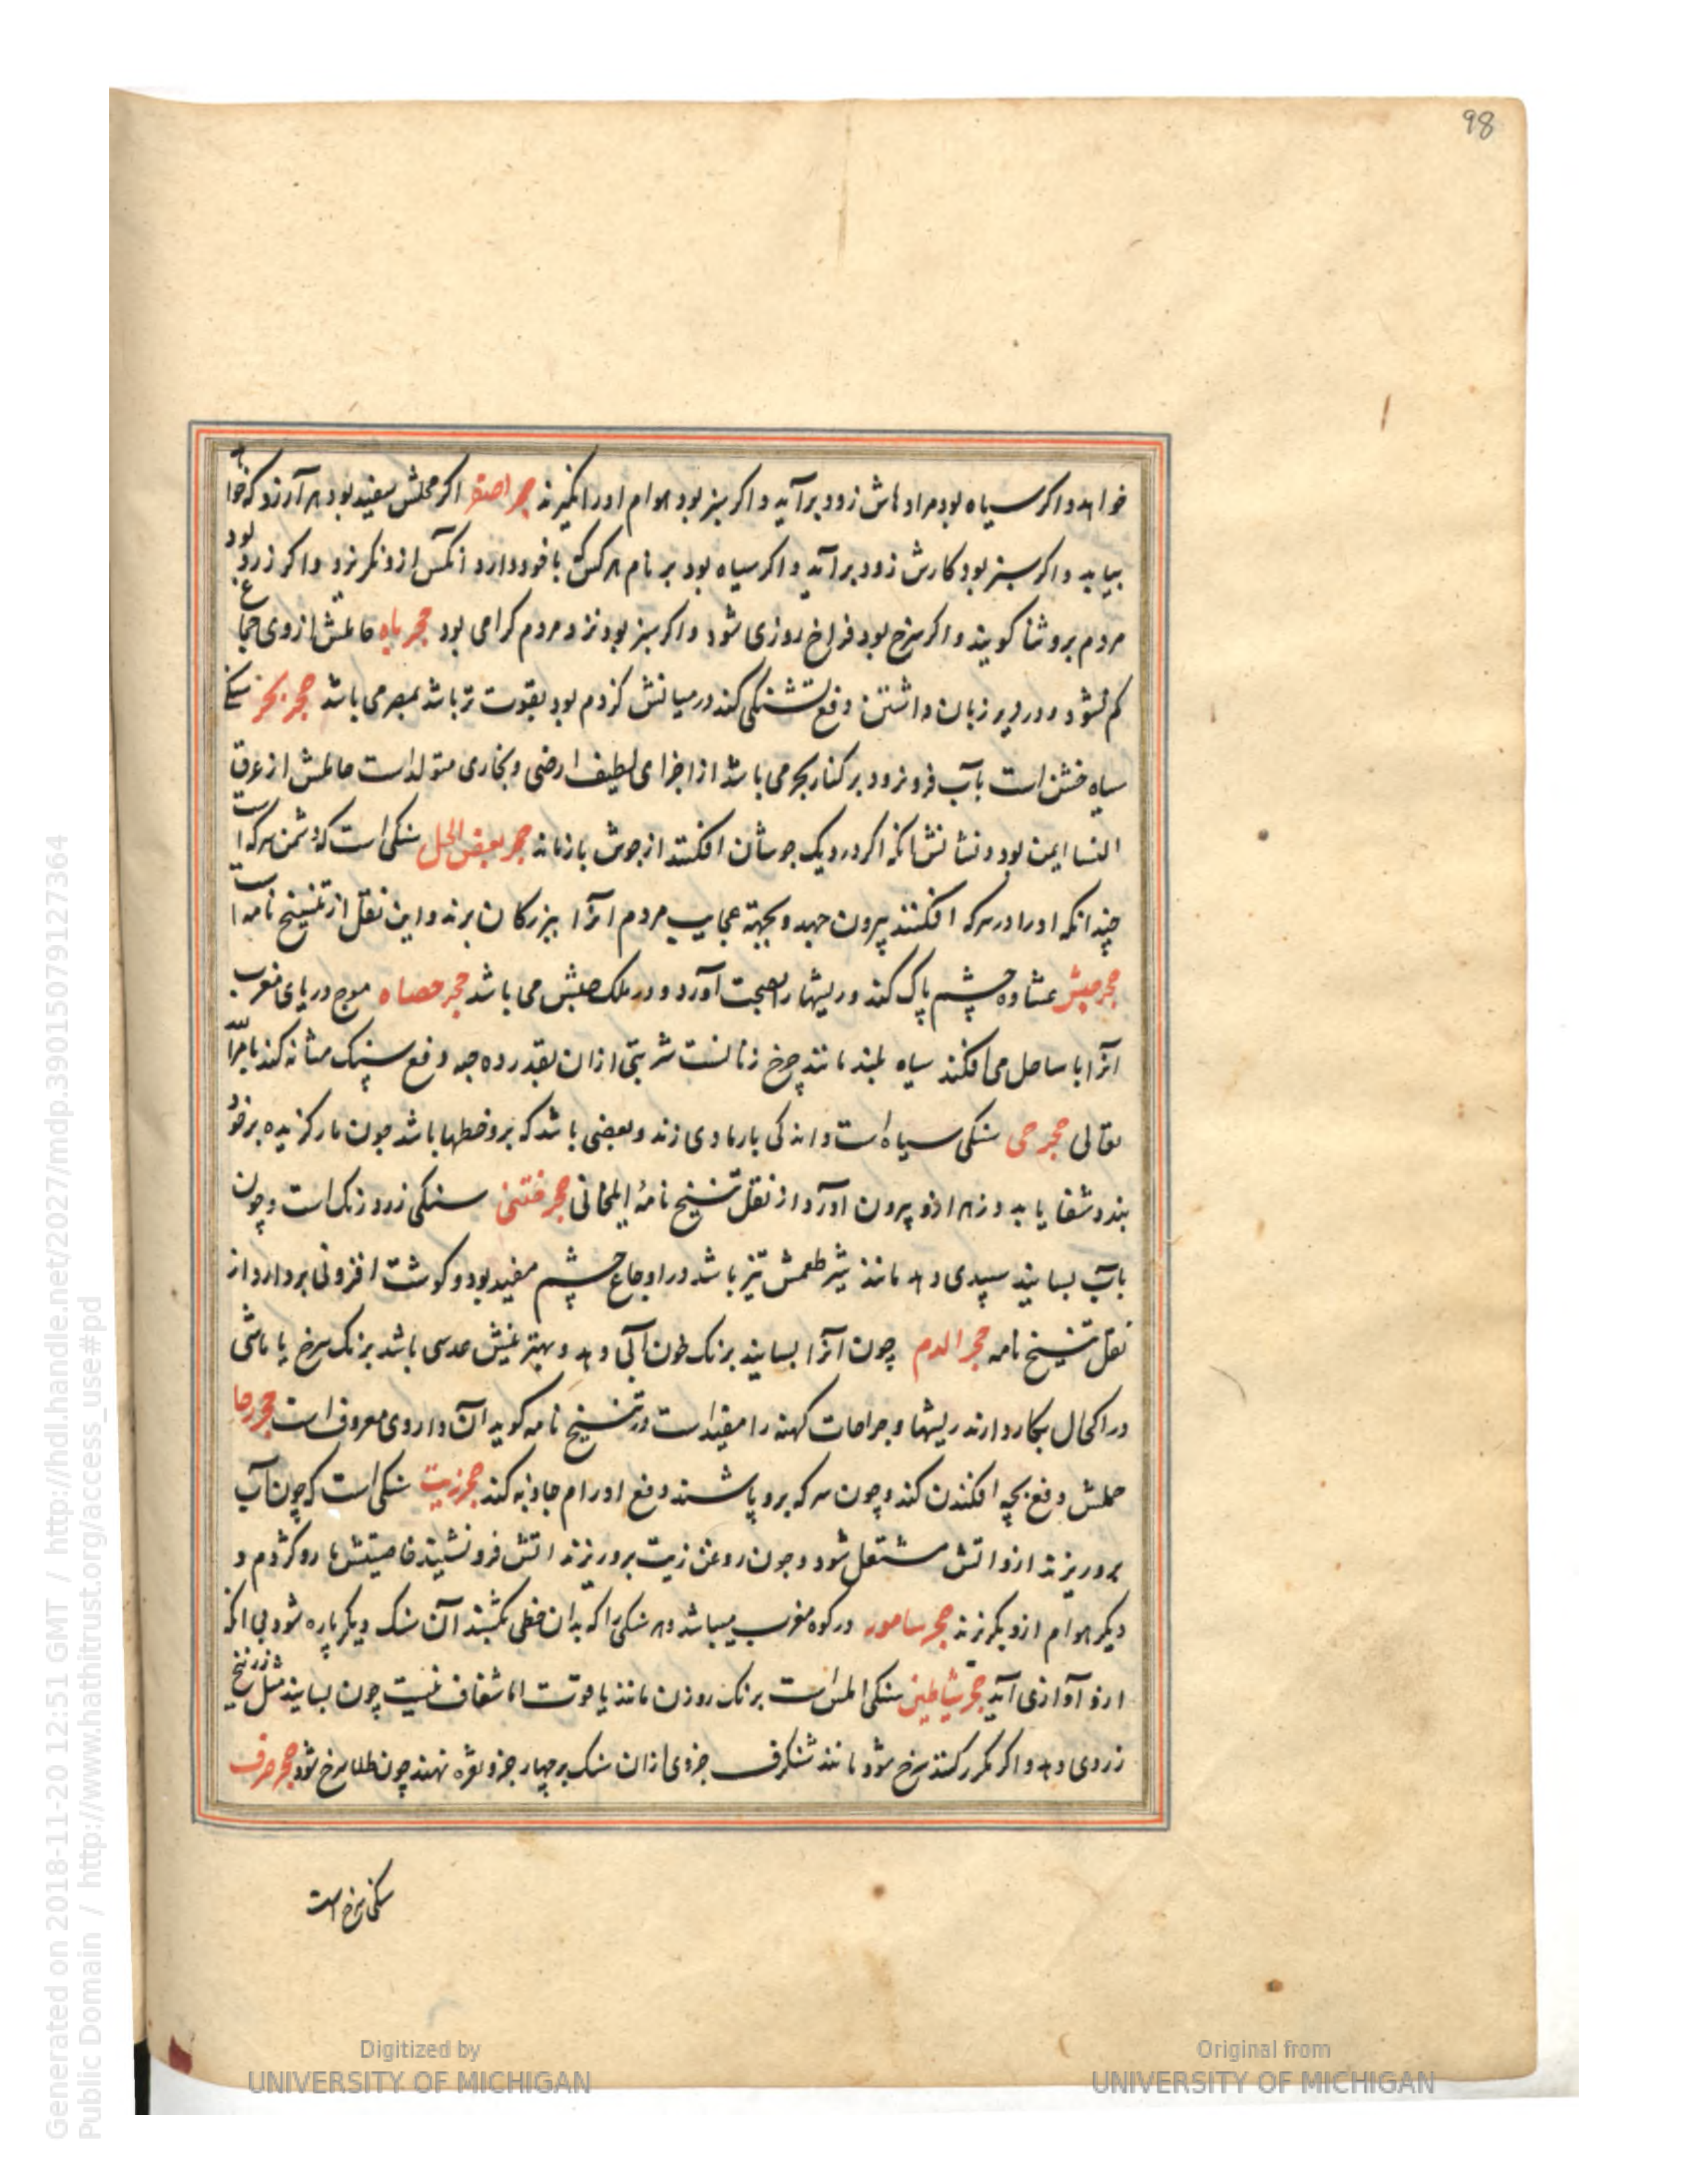 98
خواهد و اکر سیاه بود مرادهاش زود برآید و اکر سبز بود هوام او را نکیرند حجر اصفر اکر محکش سفید بود هر آرزو که خواهد
بیابد و اکر سبز بود کارش زود برآید و اکر سیاه بود بر نام هر کس با خود دارد آنکس ازو نکریزد و اکر زرد بود
مردم برو ثنا کویند و اکر سرخ بود فراخ روزی شود و اکر سبز بود نزد مردم کرامی بود حجر باه حاملش از وی جماع
کم نشود و در زیر زبان داشتن دفع تشنکی کند در میانش کژدم بود بقوت تر باشد بمصر می باشد حجر بحر سنکی
سیاه خشن است بآب فرو نرود بر کنار بحر می باشد از اجزای لطیف ارضی و بخاری متولد است حاملش از عرق
النسا ایمن بود و نشانش آنکه اکر در دیک جوشان افکنند از جوش باز ماند حجر بغض الخل سنکی است که دشمن سرکه است
چندانکه او را در سرکه افکنند بیرون جهد و بجهة عجایب مردم آنرا ببزرکان برند و این نقل از تنسیخ نامه است
حجر حبش غشاوه چشم پاک کند و ریشها را بصحت آورد و در ملک حبش می باشد حجر حصاه موج دریای مغرب
آنرا با ساحل می افکند سیاه بلند مانند چرخ زنانست شربتی از ان بقدر ده حبه دفع سنک مثانه کند بامر الله
تعالی حجر حی سنکی سیاه است و اندکی بارمادی زند و بعضی باشد که برو خطها باشد چون مار کزیده بر خود
بندد شفا یابد و زهر ازو بیرون آورد از نقل تنسیخ نامه ایلخانی حجر ختنی سنکی زرد رنک است و چون
بآب بسایند سپیدی دهد مانند شیر طعمش تیز باشد در اوجاع چشم مفید بود و کوشت افزونی بردارد از
نقل تنسیخ نامه حجر الدم چون آنرا بسایند برنک خون آبی دهد و بهترینش عدسی باشد برنک سرخ یا ماشی
در اکحال بکار دارند ریشها و جراحات کهنه را مفید است در تنسیخ نامه کوید آن داروی معروف است حجر رحا
حملش دفع بچه افکندن کند و چون سرکه برو پاشند دفع اورام جاذبه کند حجر زیت سنکی است که چون آب
برو ریزند ازو آتش مشتعل شود و چون روغن زیت برو ریزند آتش فرو نشیند خاصیتش مار و کژدم و
دیکر هوام ازو بکریزند حجر سامور در کوه مغرب میباشد و هر سنکی را که بدان خطی کشند آن سنک دیکر پاره شود بی آنکه
ازو آوازی آید حجر شیاطین سنکی املس است برنک روزن مانند یاقوت اما شفاف نیست چون بسایند مثل زرنیخ
زردی دهد و اکر مکرر کنند سرخ شود مانند شنکرف جزوی از ان سنک بر چهار جزو نقره نهند چون طلا سرخ شود حجر صرف
سنکی سرخ است
Generated on 2018-11-20 12:51 GMT / http://hdl.handle.net/2027/mdp.39015079127364
Public Domain / http://www.hathitrust.org/access_use#pd
Digitized by
UNIVERSITY OF MICHIGAN
Original from
UNIVERSITY OF MICHIGAN